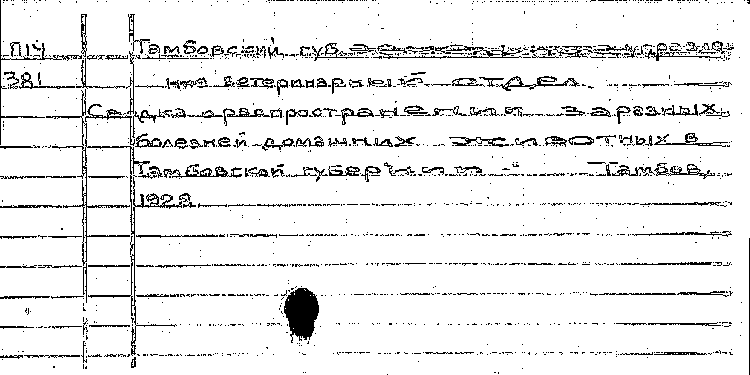 П14 Тамбовский губ. земельное управле-
381 ние ветеринарный отдел.
Сводка о распространении заразных
болезней домашних животных в
Тамбовской губернии - Тамбов,
1928.